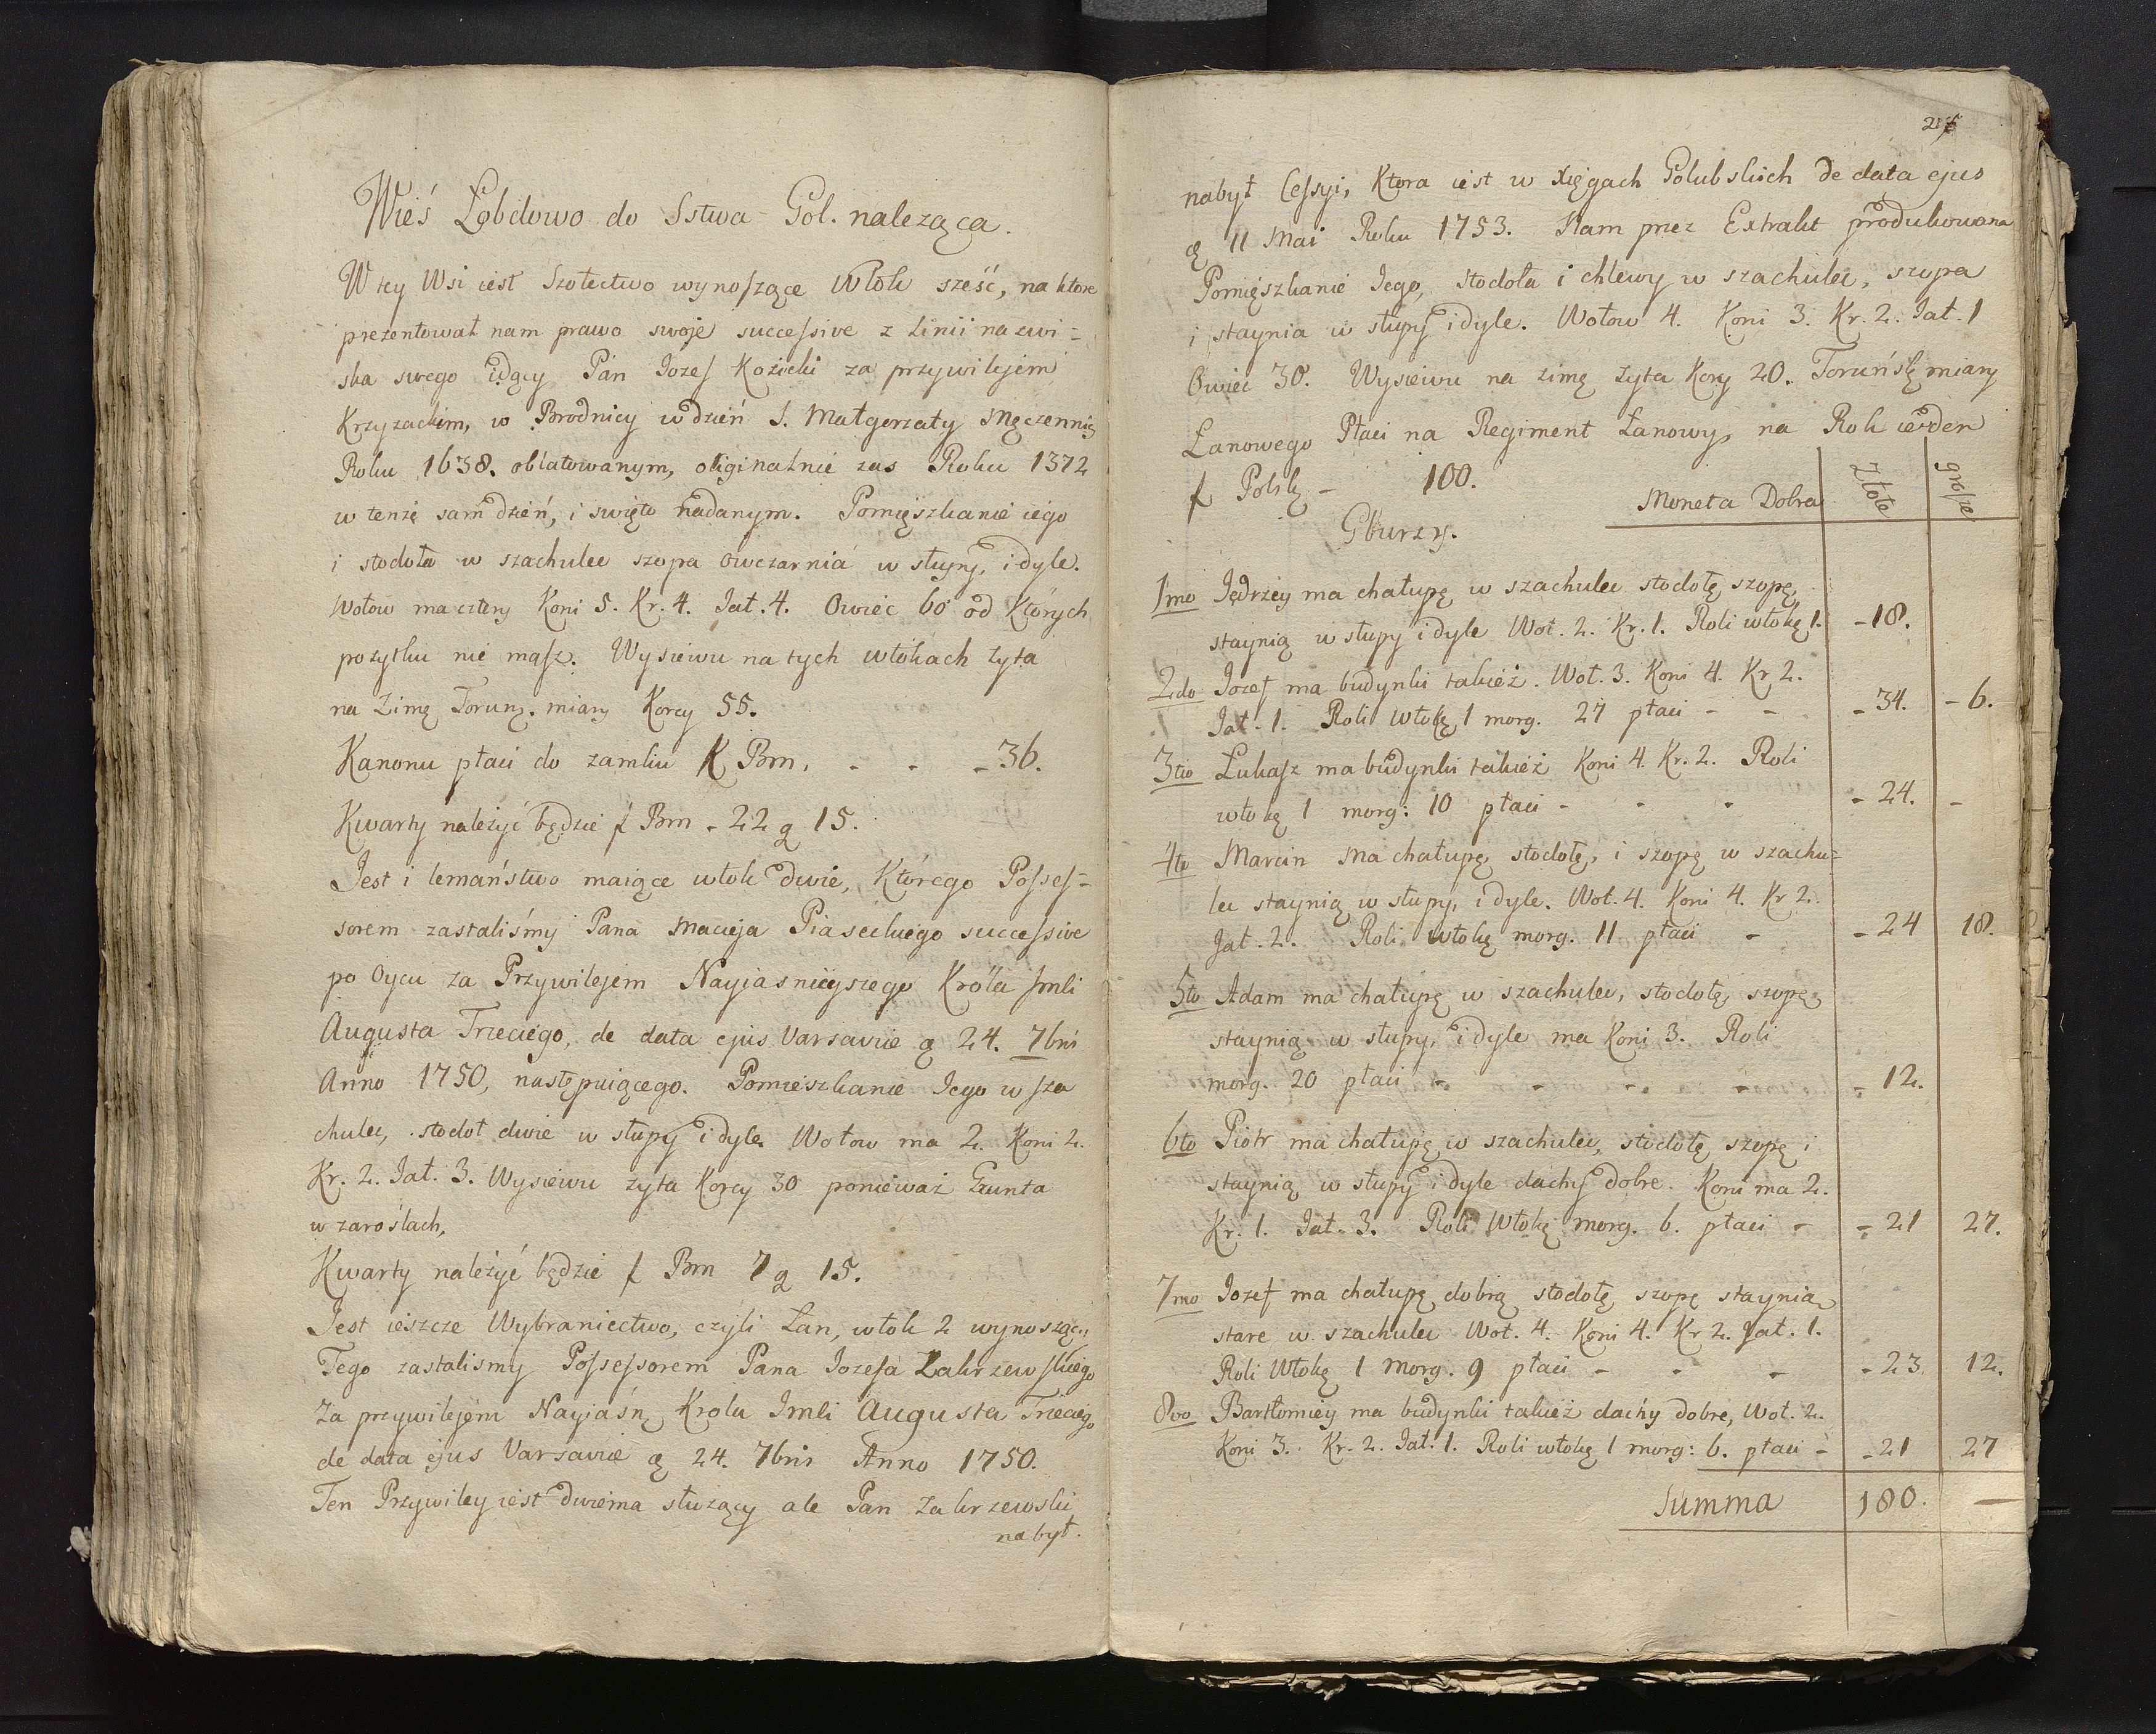 Wieś Łobdowo do Sstwa Gol. należąca.
W tey Wsi iest Szołectwo wynoszące Włók sześć, na ktore
prezentował nam prawo swoje successive z Linii nazwi-
ska swego idący Pan Jozef Kozicki za przywilejem
Krzyzackim, w Brodnicy w dzień S. Małgorzaty Męczennię
Roku 1638. oblatowanym, originalnie zas Roku 1372
w tenże sam dzień, i swięto nadanym. Pomięszkanie iego
i stodoła w szachulec szopa owczarnia w słupy, i dyle.
Wołow ma cztery Koni 5. Kr. 4. Jał. 4. Owiec 60 od Których
pozytku nie masz. Wysiewu na tych włókach żyta
na Zimę Toruń. miary Korcy 55.
Kanonu płaci do zamku f Brn. - - - 36.
Kwarty należyć będzie f Brn - 22 g 15.
Jest i lemaństwo maiące włók dwie, Którego Posses-
sorem zastaliśmy Pana Macieja Piaseckiego successive
po Oycu za Przywilejem Nayjasnieyszego Króla Jmci
Augusta Trzeciego, de data ejus Varsavie q 24. 7bris
Anno 1750, następuiącego. Pomieszkanie Jego w sza
chulec, stodoł dwie w słupy i dyle. Wołow ma 2. Koni 2.
Kr. 2. Jał. 3. Wysiewu żyta Korcy 30 ponieważ Grunta
w zaroślach,
Kwarty należyć będzie f Brn 7 g 15.
Jest ieszcze Wybraniectwo, czyli Łan, włók 2 wynoszące,
Tego zastalismy Possessorem Pana Jozefa Zakrzewskiego
Za przywilejem Nayjaśn. Krola Jmci Augusta Trzeciego
de data ejus Varsavie q 24. 7bris Anno 1750.
Ten Przywiley iest dwiema służący ale Pan Zakrzewski
nabył.
nabył Cessyi, Ktora iest w Xięgach Golubskich de data ejus
q 11 Maii Roku 1753. Nam przez Extrakt produkowana
Pomięszkanie Jego, stodoła i chlewy w szachulec, szopa
i staynia w słupy i dyle. Wołow 4. Koni 3. Kr. 2. Jał. 1
Owiec 30. Wysiewu na zimę żyta Korcy 20. Toruńsk. miary
Łanowego Płaci na Regiment Łanowy, na Rok ieden
f Polsk. - 100.
Moneta Dobra Złote grosze
Gburzy.
1mo Jędrzey ma chałupę w szachulec stodołę, szopę,
staynią w słupy i dyle Woł. 2. Kr. 1. Roli włókę 1. - 18.
2do Jozef ma budynki takież. Woł. 3. Koni 4. Kr. 2.
Jał. 1. Roli Włókę 1 morg. 27 płaci - - - 34. - 6.
3tio Łukasz ma budynki takież Koni 4. Kr. 2. Roli
włokę 1 morg: 10 płaci - - - - 24. -
4to Marcin Ma chałupę, stodołę, i szopę w szachu-
lec staynią w słupy, i dyle. Woł. 4. Koni 4. Kr 2.
Jał. 2. Roli włokę morg. 11 płaci - - 24 18.
5to Adam ma chałupę w szachulec, stodołę, szopę,
staynią w słupy, i dyle ma Koni 3. Roli
morg. 20 płaci - - - - - 12.
6to Piotr ma chałupę w szachulec, stodołę, szopę i
staynią w słupy i dyle dachy dobre. Koni ma 2.
Kr. 1. Jał. 3. Roli Włokę morg. 6. płaci - - 21 27.
7mo Jozef ma chałupę dobrą stodołę, szopę staynią
stare w szachulec Woł. 4. Koni 4. Kr 2. Jał. 1.
Roli Włokę 1 Morg. 9 płaci - - - - 23. 12.
8vo Bartłomiey ma budynki takież dachy dobre, Woł. 2.
Koni 3. Kr. 2. Jał. 1. Roli włokę 1 morg: 6. płaci - - 21 27
Summa 180. —